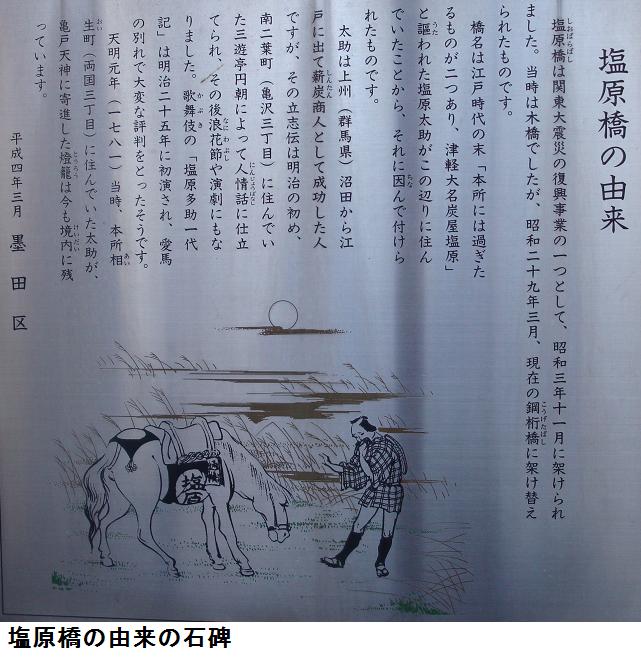 塩原橋の由来
塩原橋は関東大震災の復興事業の一つとして、昭和三年十一月に架けられ
ました。当時は木橋でしたが、昭和二十九年三月、現在の鋼桁橋に架け替え
られたものです。
橋名は江戸時代の末「本所には過ぎた
るものが二つあり、津軽大名炭屋塩原」
と謳われた塩原太助がこの辺りに住ん
でいたことから、それに因んで付けら
れたものです。
太助は上州（群馬県）沼田から江
戸に出て薪炭商人として成功した人
ですが、その立志伝は明治の初め、
南二葉町（亀沢三丁目）に住んでい
た三遊亭円朝によって人情話に仕立
てられ、その後浪花節や演劇にもな
りました。歌舞伎の「塩原多助一代
記」は明治二十五年に初演され、愛馬
の別れで大変な評判をとったそうです。
天明元年（一七八一）当時、本所相
生町（両国三丁目）に住んでいた太助が、
亀戸天神に寄進した燈籠は今も境内に残
っています。
平成四年三月 墨田区
塩原
塩原橋の由来の石碑